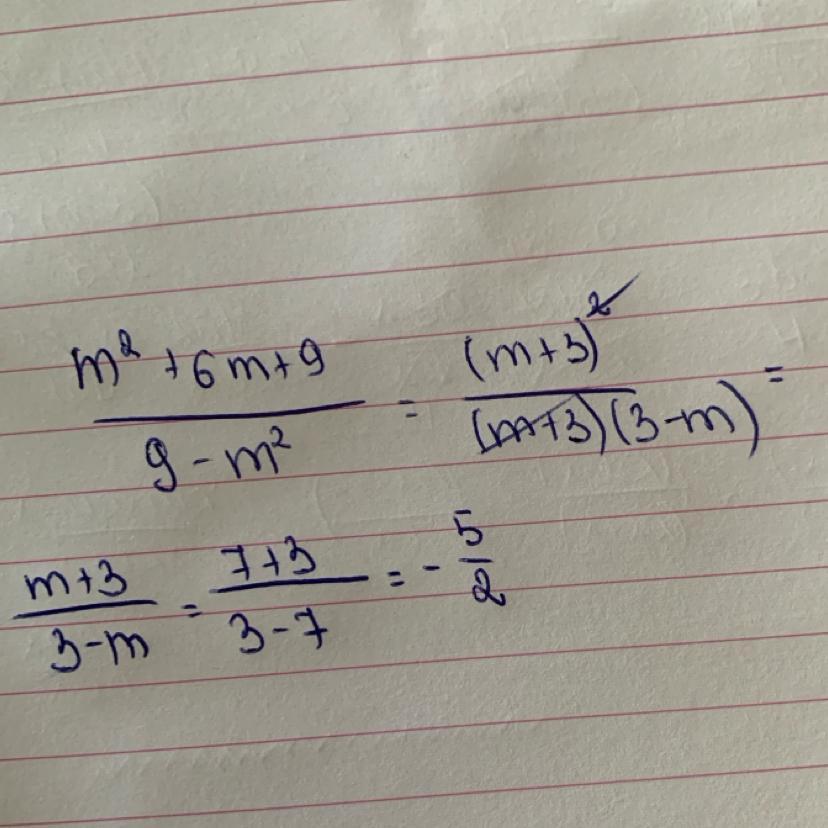 m² + 6m + 9 / 9 - m² = (m+3)² / (m+3)(3-m) =
m+3 / 3-m = 7+3 / 3-7 = - 5/2